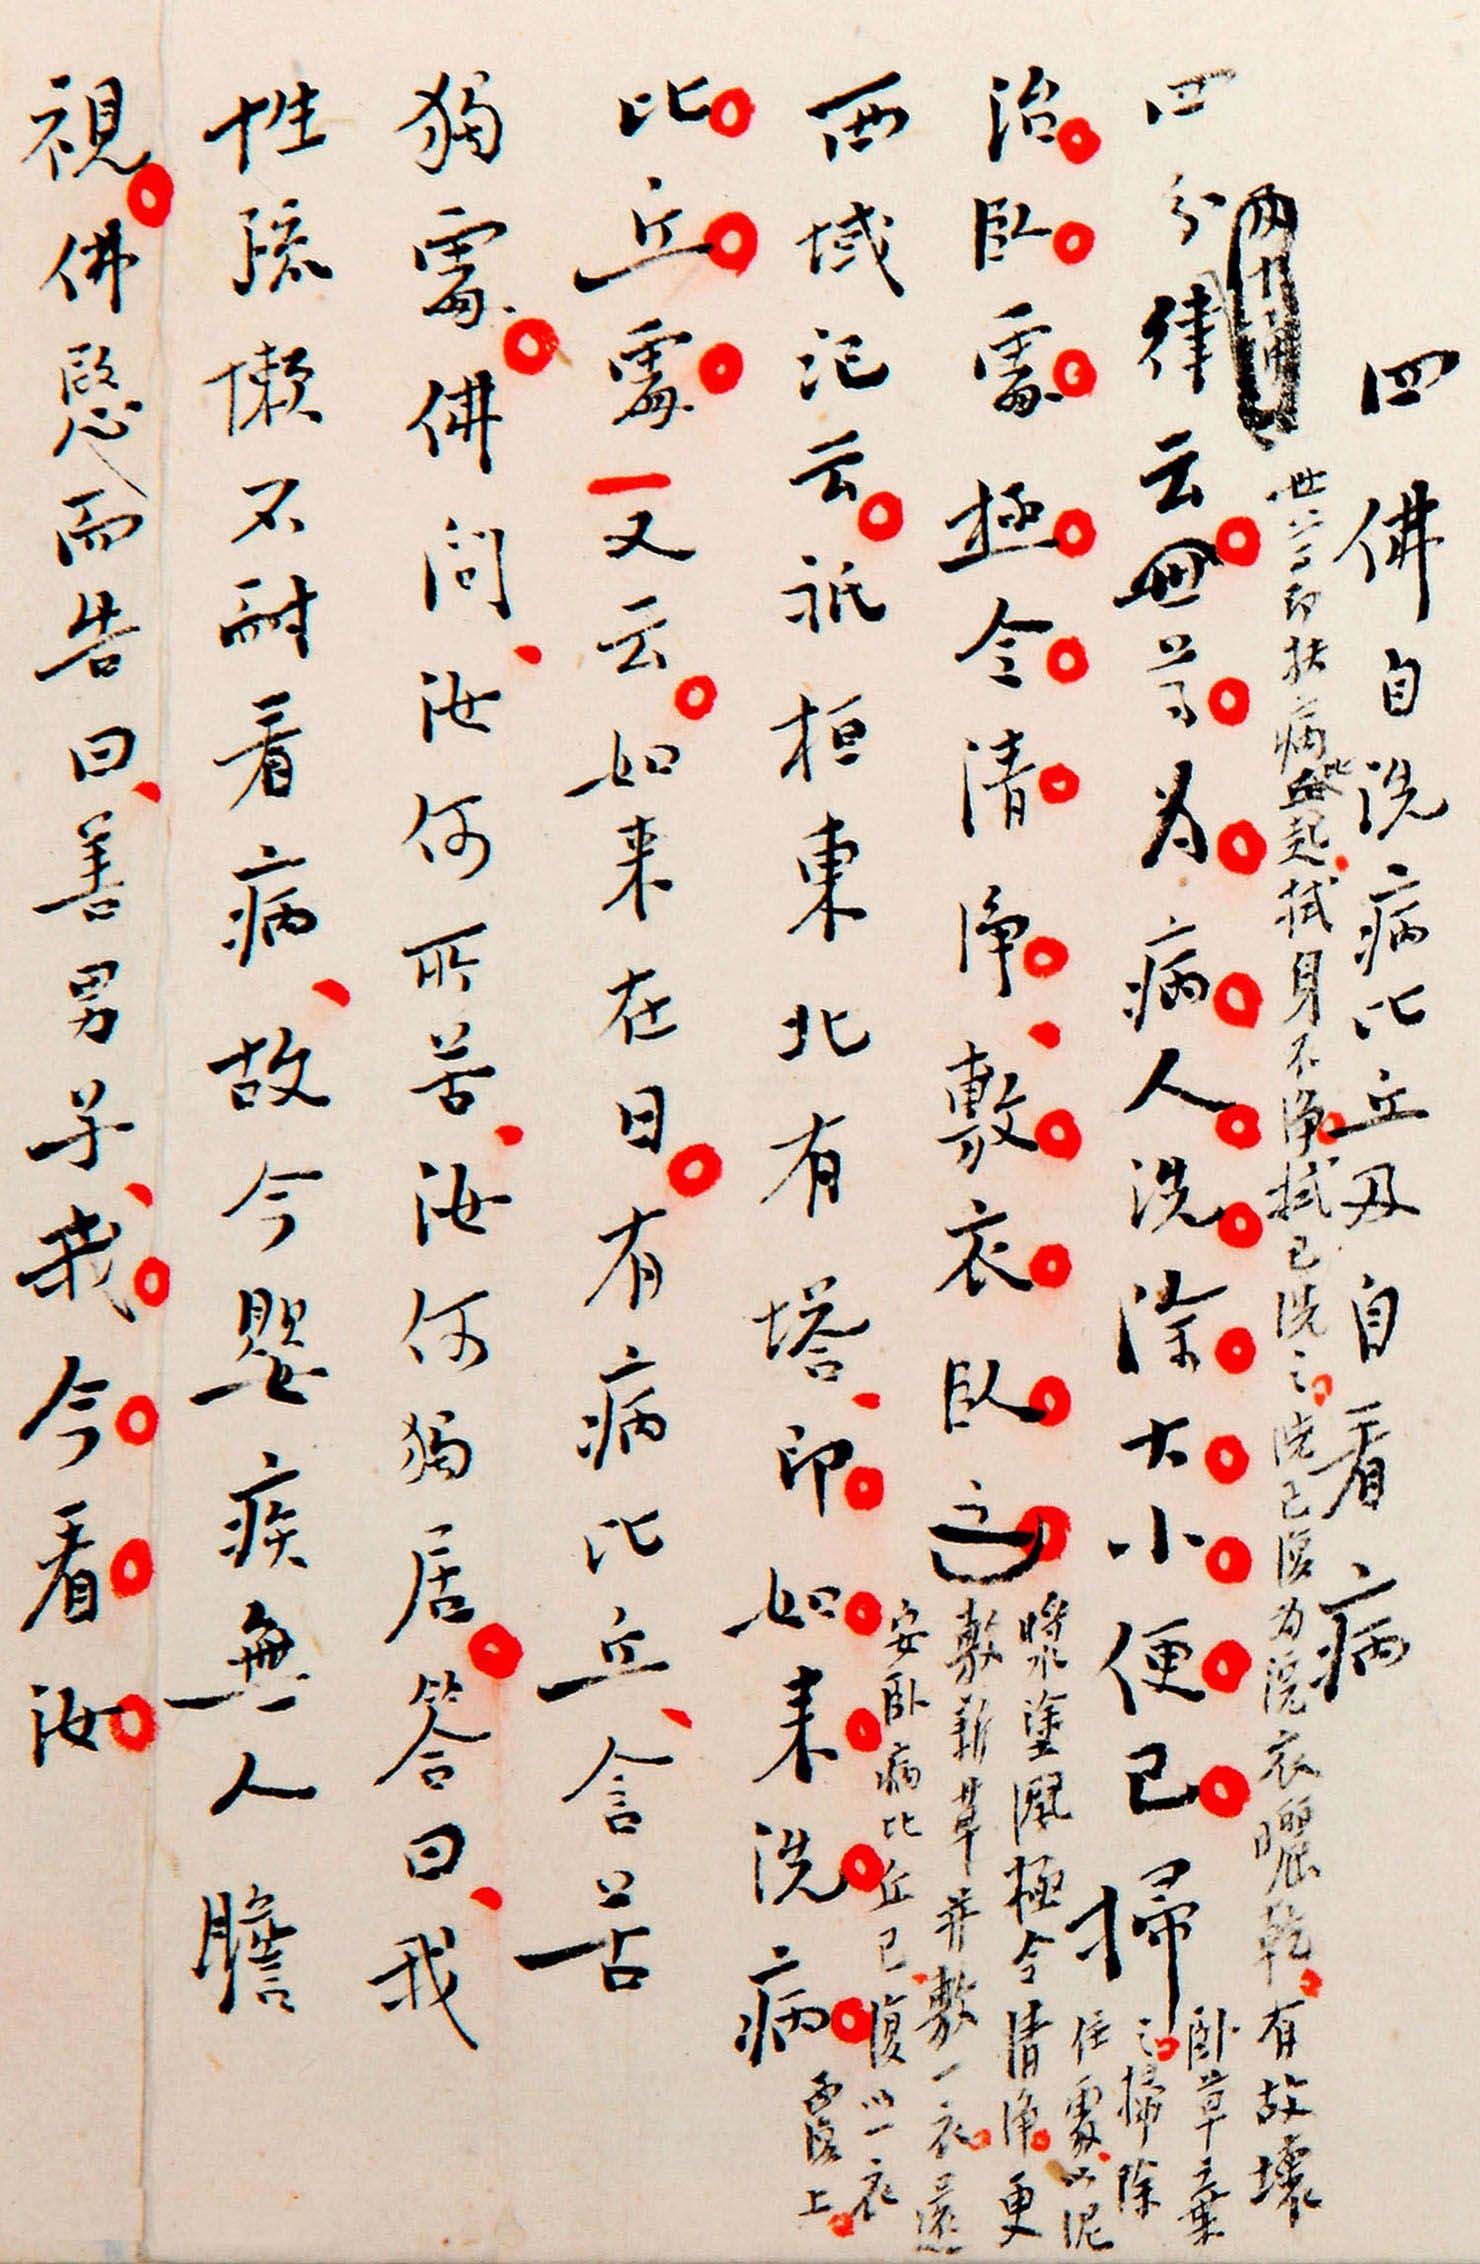 四佛自洗病比丘及自看病
世尊即扶病比丘起拭身不淨拭已洗之洗已復為浣衣曬乾有故壞
臥草棄之掃除住處以泥
漿塗灑極令清淨更
敷新草并敷一衣還
安臥病比丘已復以一衣
覆上
四分律云世尊為病人洗除大小便已掃
治臥處極令清淨敷衣臥之
西域記云祇桓東北有塔印如来洗病
比丘處又云如来在日有病比丘含苦
獨處佛問汝何所苦汝何獨居答曰我
性疏懶不耐看病故今嬰疾無人瞻
視佛愍而告曰善男子我今看汝